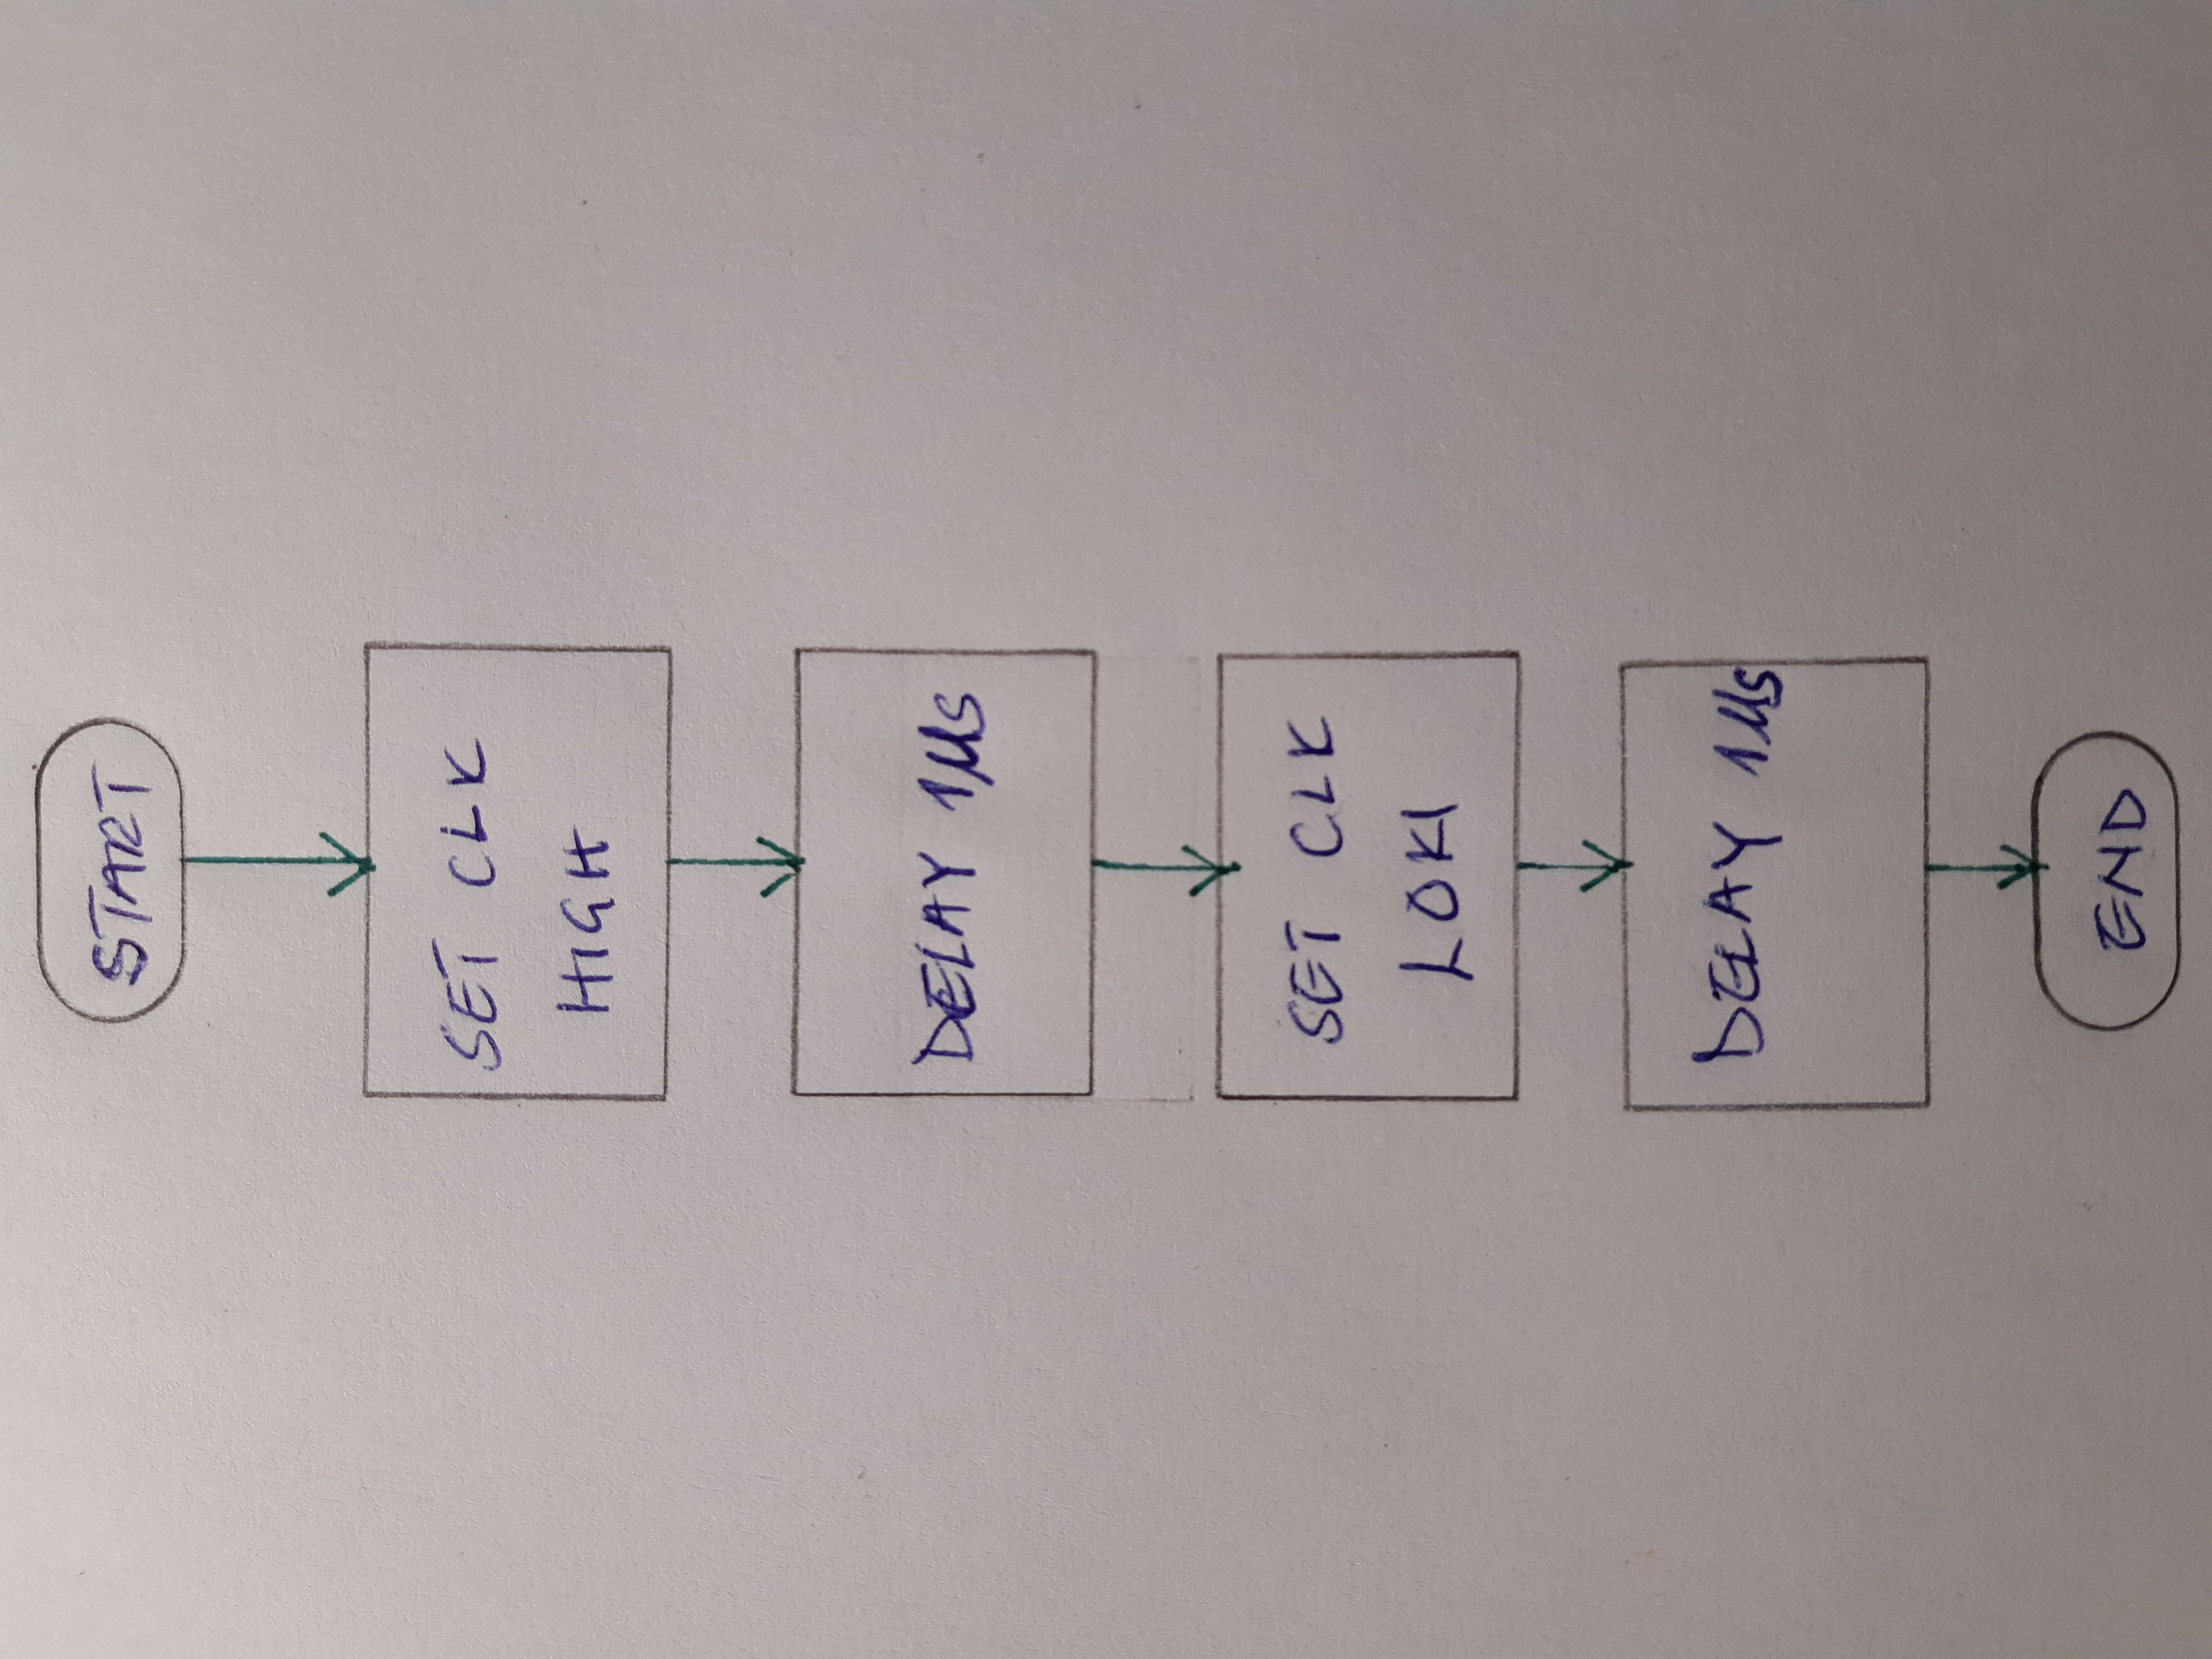 START
SET CLK
HIGH
DELAY 1µs
SET CLK
LOKI
DELAY 1µs
END